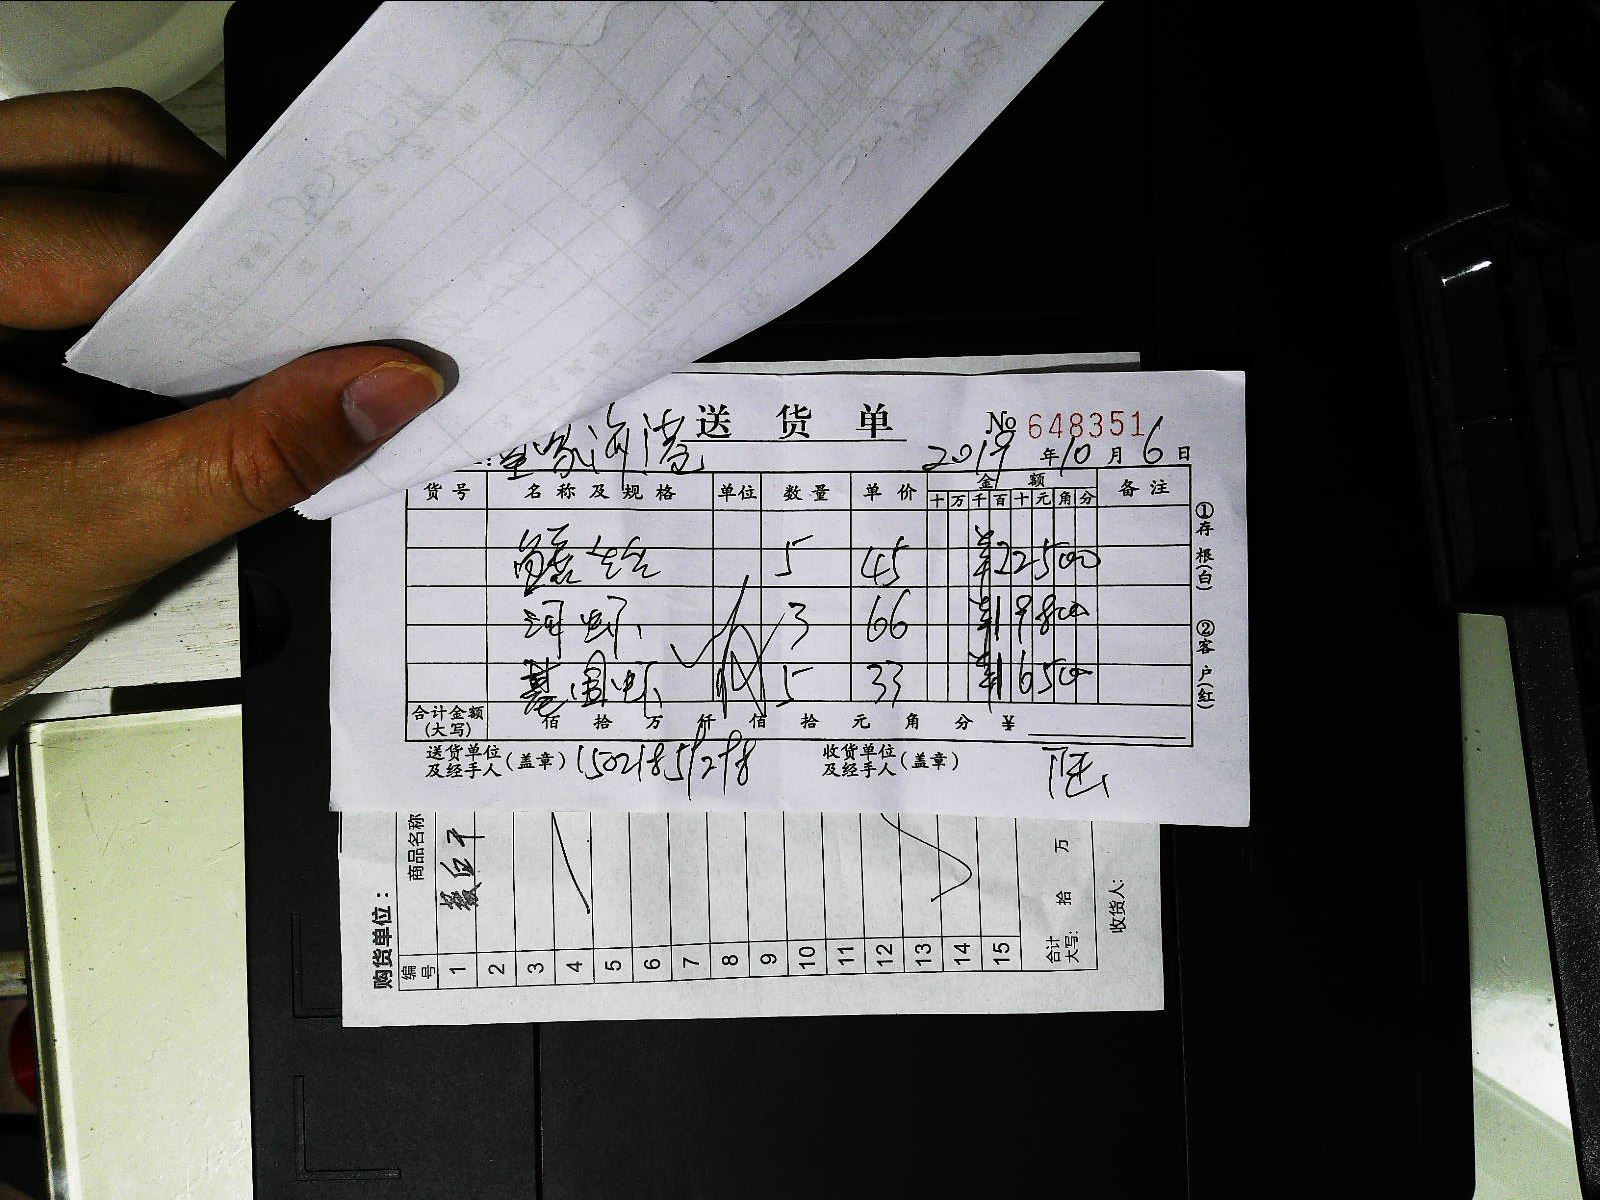 送货单 № 648351
家海港 2019年10月6日
货号 名称及规格 单位 数量 单价 金额 备注
十 万 千 百 十 元 角 分
5 45 22500
河虾 3 66 19800
基围虾 5 33 16500
合计金额(大写) 佰 拾 万 仟 佰 拾 元 角 分 ¥
送货单位及经手人(盖章) 15021851298 收货单位及经手人(盖章)
①存根(白) ②客户(红)
购货单位:
编号 商品名称
1
2
3
4
5
6
7
8
9
10
11
12
13
14
15
合计大写: 拾 万
收货人: